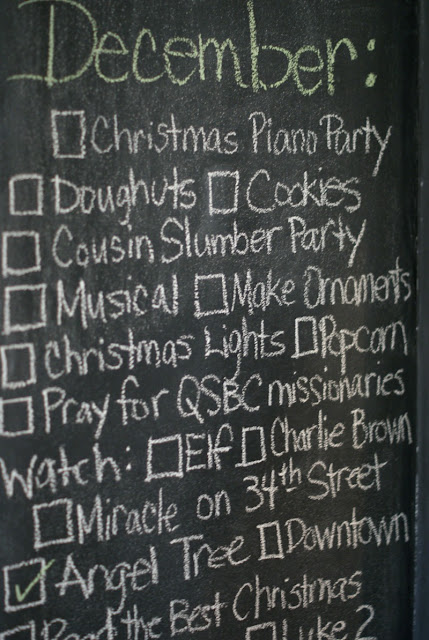 December:
☐ Christmas Piano Party
☐ Doughnuts ☐ Cookies
☐ Cousin Slumber Party
☐ Musical ☐ Make Ornaments
☐ Christmas Lights ☐ Popcorn
☐ Pray for QSBC missionaries
Watch: ☐ Elf ☐ Charlie Brown
☐ Miracle on 34th Street
☑ Angel Tree ☐ Downtown
☐ Read the Best Christmas
☐ Luke 2